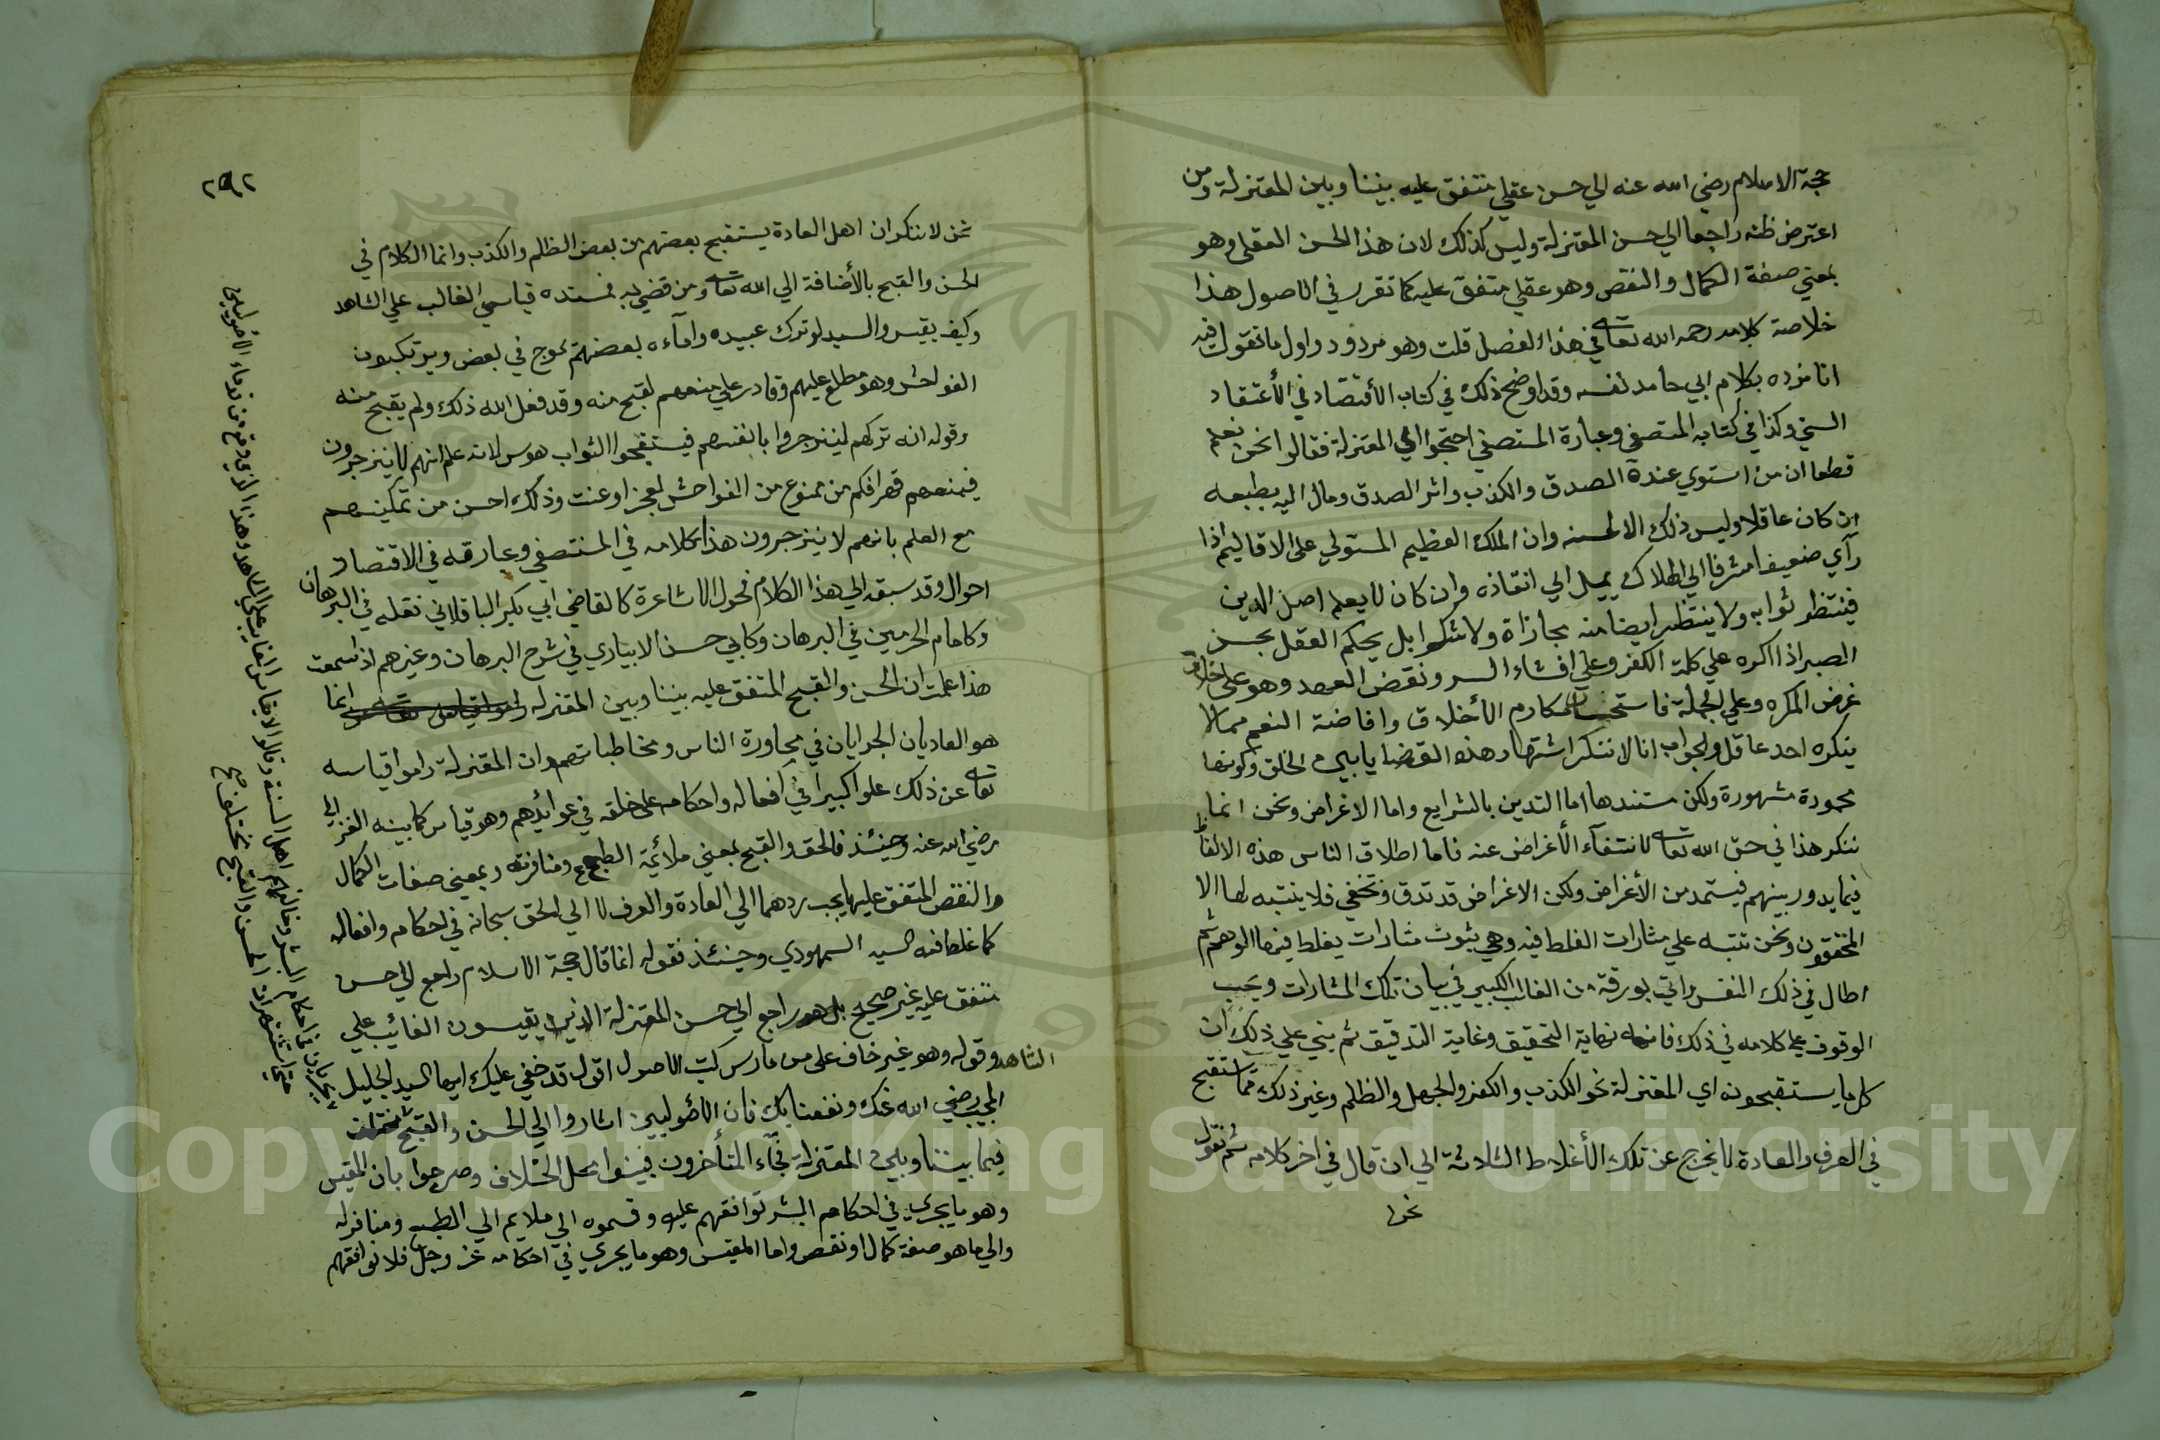 حجة الاسلام رضي الله عنه الي حسن عقلي متفق عليه بيننا وبين المعتزلة ومن
اعترض ظنه راجعا الي حسن المعتزلة وليس كذلك لان هذا الحسن العقلي وهو
بمعني صفة الكمال والنقص وهو عقلي متفق عليه كما تقرر في الاصول هذا
خلاصة كلامه رحمه الله تعا في هذا الفصل قلت وهو مردود واول ما نقول فيه
انا نرده بكلام ابي حامد نفسه وقد اوضح ذلك في كتاب الأقتصاد في الأعتقاد
السني وكذا في كتابه المستصفي وعبارة المستصفي احتجوا اي المعتزلة فقالوا نحن نعلم
قطعا ان من استوي عنده الصدق والكذب واثر الصدق ومال اليه بطبعه
ان كان عاقلا وليس ذلك الا لحسنه وان الملك العظيم المستولي علي الاقاليم اذا
رآي ضعيفا مشرفا الي الهلاك يميل الي انقاذه وان كان لا يعلم اصل الدين
فينتظر ثوابه ولا ينتظر ايضا منه مجازاة ولا شكرا بل يحكم العقل بحسن
الصبر اذا اكره علي كلمة الكفر وعلي افشاء السر ونقض العهد وهو علي خلاف
غرض المكره وعلي الجملة فاستحسان مكارم الأخلاق وافاضة النعم مما لا
ينكره احد عاقل والجواب انا لا ننكر اشتهار هذه القضايا بين الخلق وكونها
محمودة مشهورة ولكن مستندها اما التدين بالشرايع واما الاغراض ونحن انما
ننكر هذا في حق الله تعا لانتفآء الأغراض عنه فاما اطلاق الناس هذه الالفاظ
فيما يدور بينهم فيستمد من الأغراض ولكن الاغراض قد تدق وتخفي فلا ينتبه لها الا
المحققون ونحن ننبه علي مثارات الغلط فيه وهي ثلاث مثارات يغلط فيها الوهم ثم
اطال في ذلك النفس واتي بورقة من القالب الكبير في بيان تلك المثارات ويجب
الوقوف علي كلامه في ذلك فانه نهاية التحقيق وغاية التدقيق ثم بني علي ذلك ان
كل ما يستقبحونه اي المعتزلة نحو الكذب والكفر والجهل والظلم وغير ذلك مما يستقبح
في العرف والعادة لا يخرج عن تلك الأغلاط الثلاثة الي ان قال في اخر كلامه ثم نقول
نحن
٢٩٢
نحن لا ننكر ان اهل العادة يستقبح بعضهم من بعض الظلم والكذب وانما الكلام في
الحسن والقبح بالأضافة الي الله تعا ومن قضي به فمستنده قياس الغائب علي الشاهد
وكيف يقيس والسيد لو ترك عبيده وامآءه بعضهم يموج في بعض ويرتكبون
الفواحش وهو مطلع عليهم وقادر علي منعهم لقبح منه وقد فعل الله ذلك ولم يقبح منه
وقوله انه تركهم لينزجروا بانفسهم فيستحقوا الثواب هوس لانه علم انهم لا ينزجرون
فيمنعهم قهرا فكم من ممنوع من الفواحش لعجز او عنت وذلك احسن من تمكينهم
مع العلم بانهم لا ينزجرون هذا كلامه في المستصفي وعبارته في الاقتصاد
احوال وقد سبقه الي هذا الكلام فحول الاشاعرة كالقاضي ابي بكر الباقلاني نقله في البرهان
وكامام الحرمين في البرهان وكابي حسن الابياري في شرح البرهان وغيرهم اذا سمعت
هذا علمت ان الحسن والقبح المتفق عليه بيننا وبين المعتزلة انما
هو العاديان الجرايان في محاورة الناس ومخاطباتهم وان المعتزلة راموا قياسه
تعا عن ذلك علوا كبيرا في افعاله واحكامه علي خلقه في عوائدهم وهو قياس كما بينه الغزالي
رضي الله عنه وحينئذ فالحق والقبح بمعني ملائمة الطبع ومنافرته وبمعني صفات الكمال
والنقص المتفق عليهما يجب ردهما الي العادة والعرف لا الي الحق سبحانه في احكامه وافعاله
كما غلط فيه السيد السمهودي وحينئذ فقوله انما قال حجة الاسلام راجع الي حسن
متفق عليه غير صحيح بل هو راجع الي حسن المعتزلة الذين يقيسون الغائب علي
الشاهد وقوله وهو غير خاف علي من مارس كتب الاصول اقول قد خفي عليك ايها السيد الجليل
المجيب رضي الله عنك ونفعنا بك فان الأصوليين اشاروا الي الحسن والقبح
فيما بيننا وبين المعتزلة فجآء المتأخرون فبينوا محل الخلاف وصرحوا بان المقيس
وهو ما يجري في احكام البشر نوافقهم عليه وقسموه الي ملايم الي الطبع ومنافر له
والي ما هو صفة كمال او نقص واما المقيس وهو ما يجري في احكامه عز وجل فلا نوافقهم